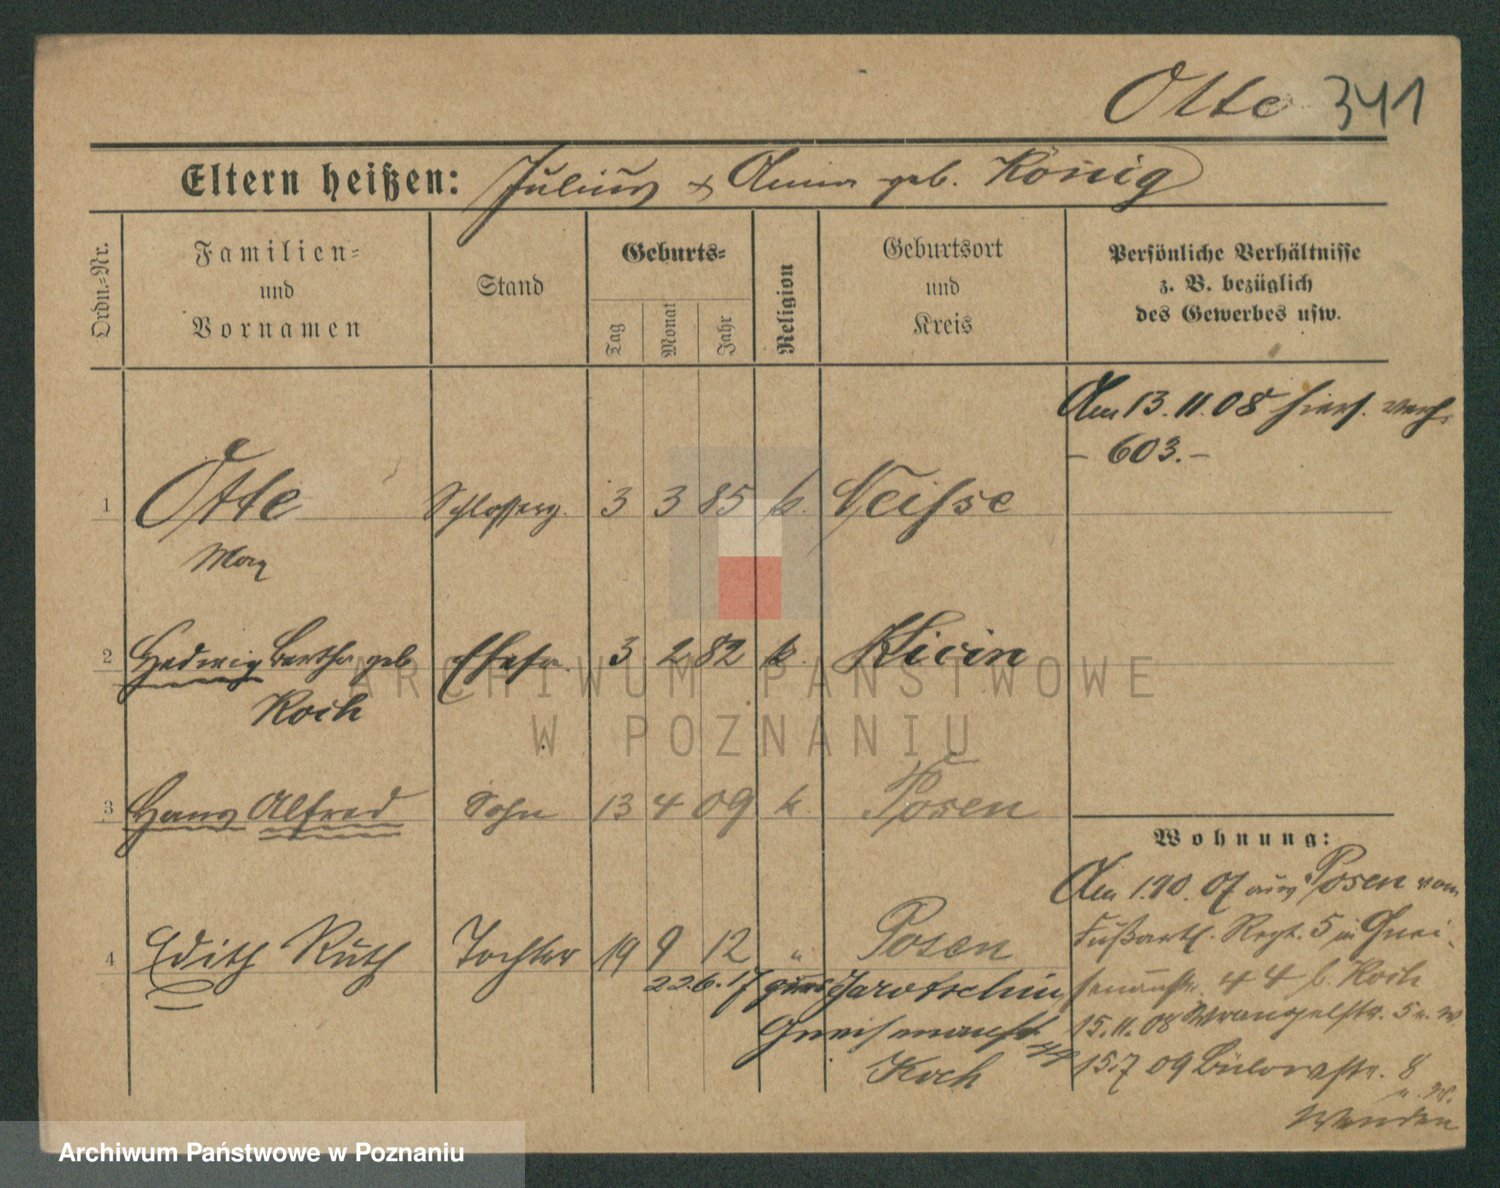 Otte 341
Eltern heißen: Julius & Anna geb. König
Ordn.-Nr.
Familien- und Vornamen
Stand
Geburts-
Tag Monat Jahr
Religion
Geburtsort und Kreis
Persönliche Verhältnisse
z. B. bezüglich
des Gewerbes usw.
Am 13.11.08 hiers. verh.
- 603. -
1 Otte Schlosserg. 3 3 85 k. Neisse
Max
2 Hedwig Bertha geb Ehefr. 3 2 82 k. Kicin
Koch
3 Hans Alfred Sohn 13 4 09 k. Posen
Wohnung:
Am 1.10.07 aus Posen vom
Fußartl. Regt. 5 in Gnei-
4 Edith Ruth Tochter 19 9 12 " Posen
senaustr. 44 b. Koch
22.6.17 Jarotschin
15.11.08 Wrangelstr. 5 u. W
Gneisenaustr 44
Koch
15.7 09 Bülowstr. 8
u. W.
Wenden
ARCHIWUM PAŃSTWOWE
W POZNANIU
Archiwum Państwowe w Poznaniu